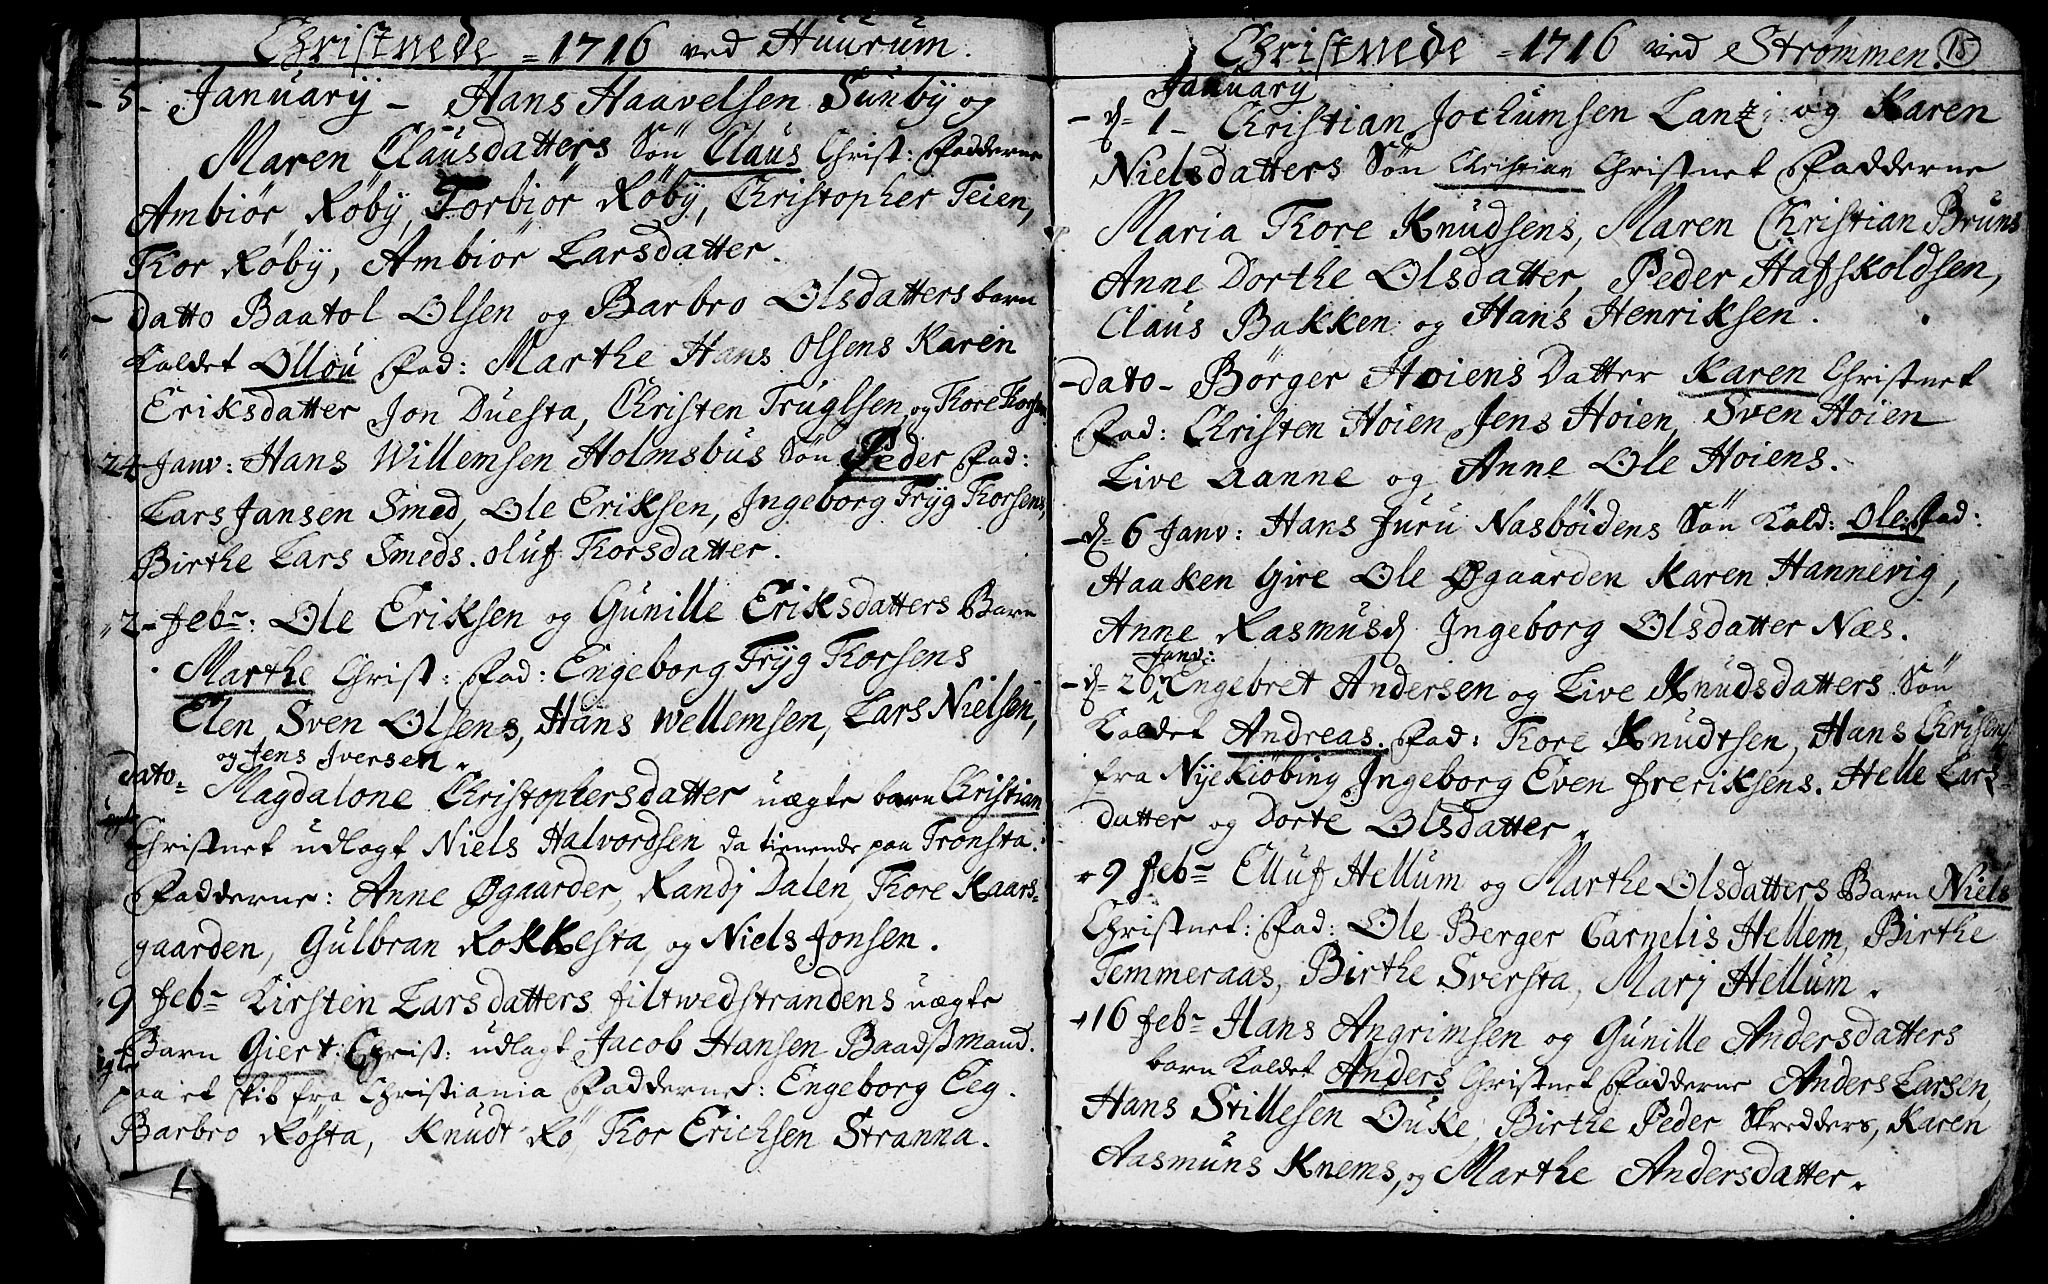 Christnede = 1716 ved Huurum.
- 5 - January - Hans Haavelsen Sunby og
Maren Clausdatters Søn Claus Christ: Fadderne
Ambiør Røby, Torbiør Røby, Christopher Teien,
Thor Røby, Ambiør Larsdatter.
- Datto Baatol Olsen og Barbro Olsdatters barn
Kaldet Ollou Fad: Marthe Hans Olsens Karen
Eriksdatter Jon Duesta, Christen Truglsen, og Thore Thorsen
24 Janv: Hans Willemsen Holmsbus Søn Peder Fad:
Lars Jansen Smed, Ole Eriksen, Ingeborg Tryg Thorsens,
Birthe Lars Smeds. oluf Thorsdatter.
" 2 - febr: Ole Eriksen og Gunille Eriksdatters Barn
Marthe Christ: Fad: Engeborg Tryg Thorsens
Elen Sven Olsens, Hans Wellemsen, Lars Nielsen,
og Jens Iversen.
dato = Magdalone Christophersdatter uægte barn Christian
Christnet udlagt Niels Halvordsen da tienende paa Tronsta.
Fadderne: Anne Øgaarder, Randj Dalen, Thore Kaars=
gaarden, Gulbran Rokkesta, og Niels Jonsen.
" 9 febr Kirsten Larsdatters filtwedstrandens uægte
Barn Giert: Christ: udlagt Jacob Hansen Baadsmand.
paa et skib fra Christiania Fadderne: Engeborg Eeg.
Barbro Røsta, Knudt Rø, Thor Erichsen Stranna.
Christnede = 1716 ved Strømmen. 15
January
- d = 1 - Christian Jochumsen Lanz og Karen
Nielsdatters Søn Christian Christnet Fadderne
Maria Thore Knudsens, Maren Christian Bruns
Anne Dorthe Olsdatter, Peder Hafskoldsen,
Claus Bakken og Hans Henriksen.
- dato - Børger Høiens Datter Karen Christnet
Fad: Christen Høien, Jens Høien, Sven Høien
Live Aanne og Anne Ole Høiens.
- d = 6 Janv: Hans Juru Nasbøidens Søn Kald: Ole: Fad:
Haaken Gire Ole Øgaarden Karen Hannevig,
Anne Rasmusd Ingeborg Olsdatter Næs.
Janv:
- d = 26 Engebret Andersen og Live Knudsdatters Søn
Kaldet Andreas. Fad: Thore Knudtsen, Hans Chrisens
fra Nyekiøbing Ingeborg Even freriksens. Helle Lars=
datter og Dorte Olsdatter.
9 febr Elluf Hellum og Marthe Olsdatters Barn Niels
Christnet: Fad: Ole Berger Carnelis Hellem, Birthe
Temmeraas, Birthe Sversta, Marj Hellum.
16 febr Hans Angrimsen og Gunille Andersdatters
barn Kaldet Anders Christnet Fadderne Anders Larsen,
Hans Stillesen Duke, Birthe Peder Skredders, Karen
Aasmuns Knems, og Marthe Andersdatter.